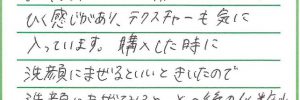 ひく感じがあり、テクスチャーも気に
入っています。購入した時に
洗顔にまぜるといいときいたので
洗顔にまぜて